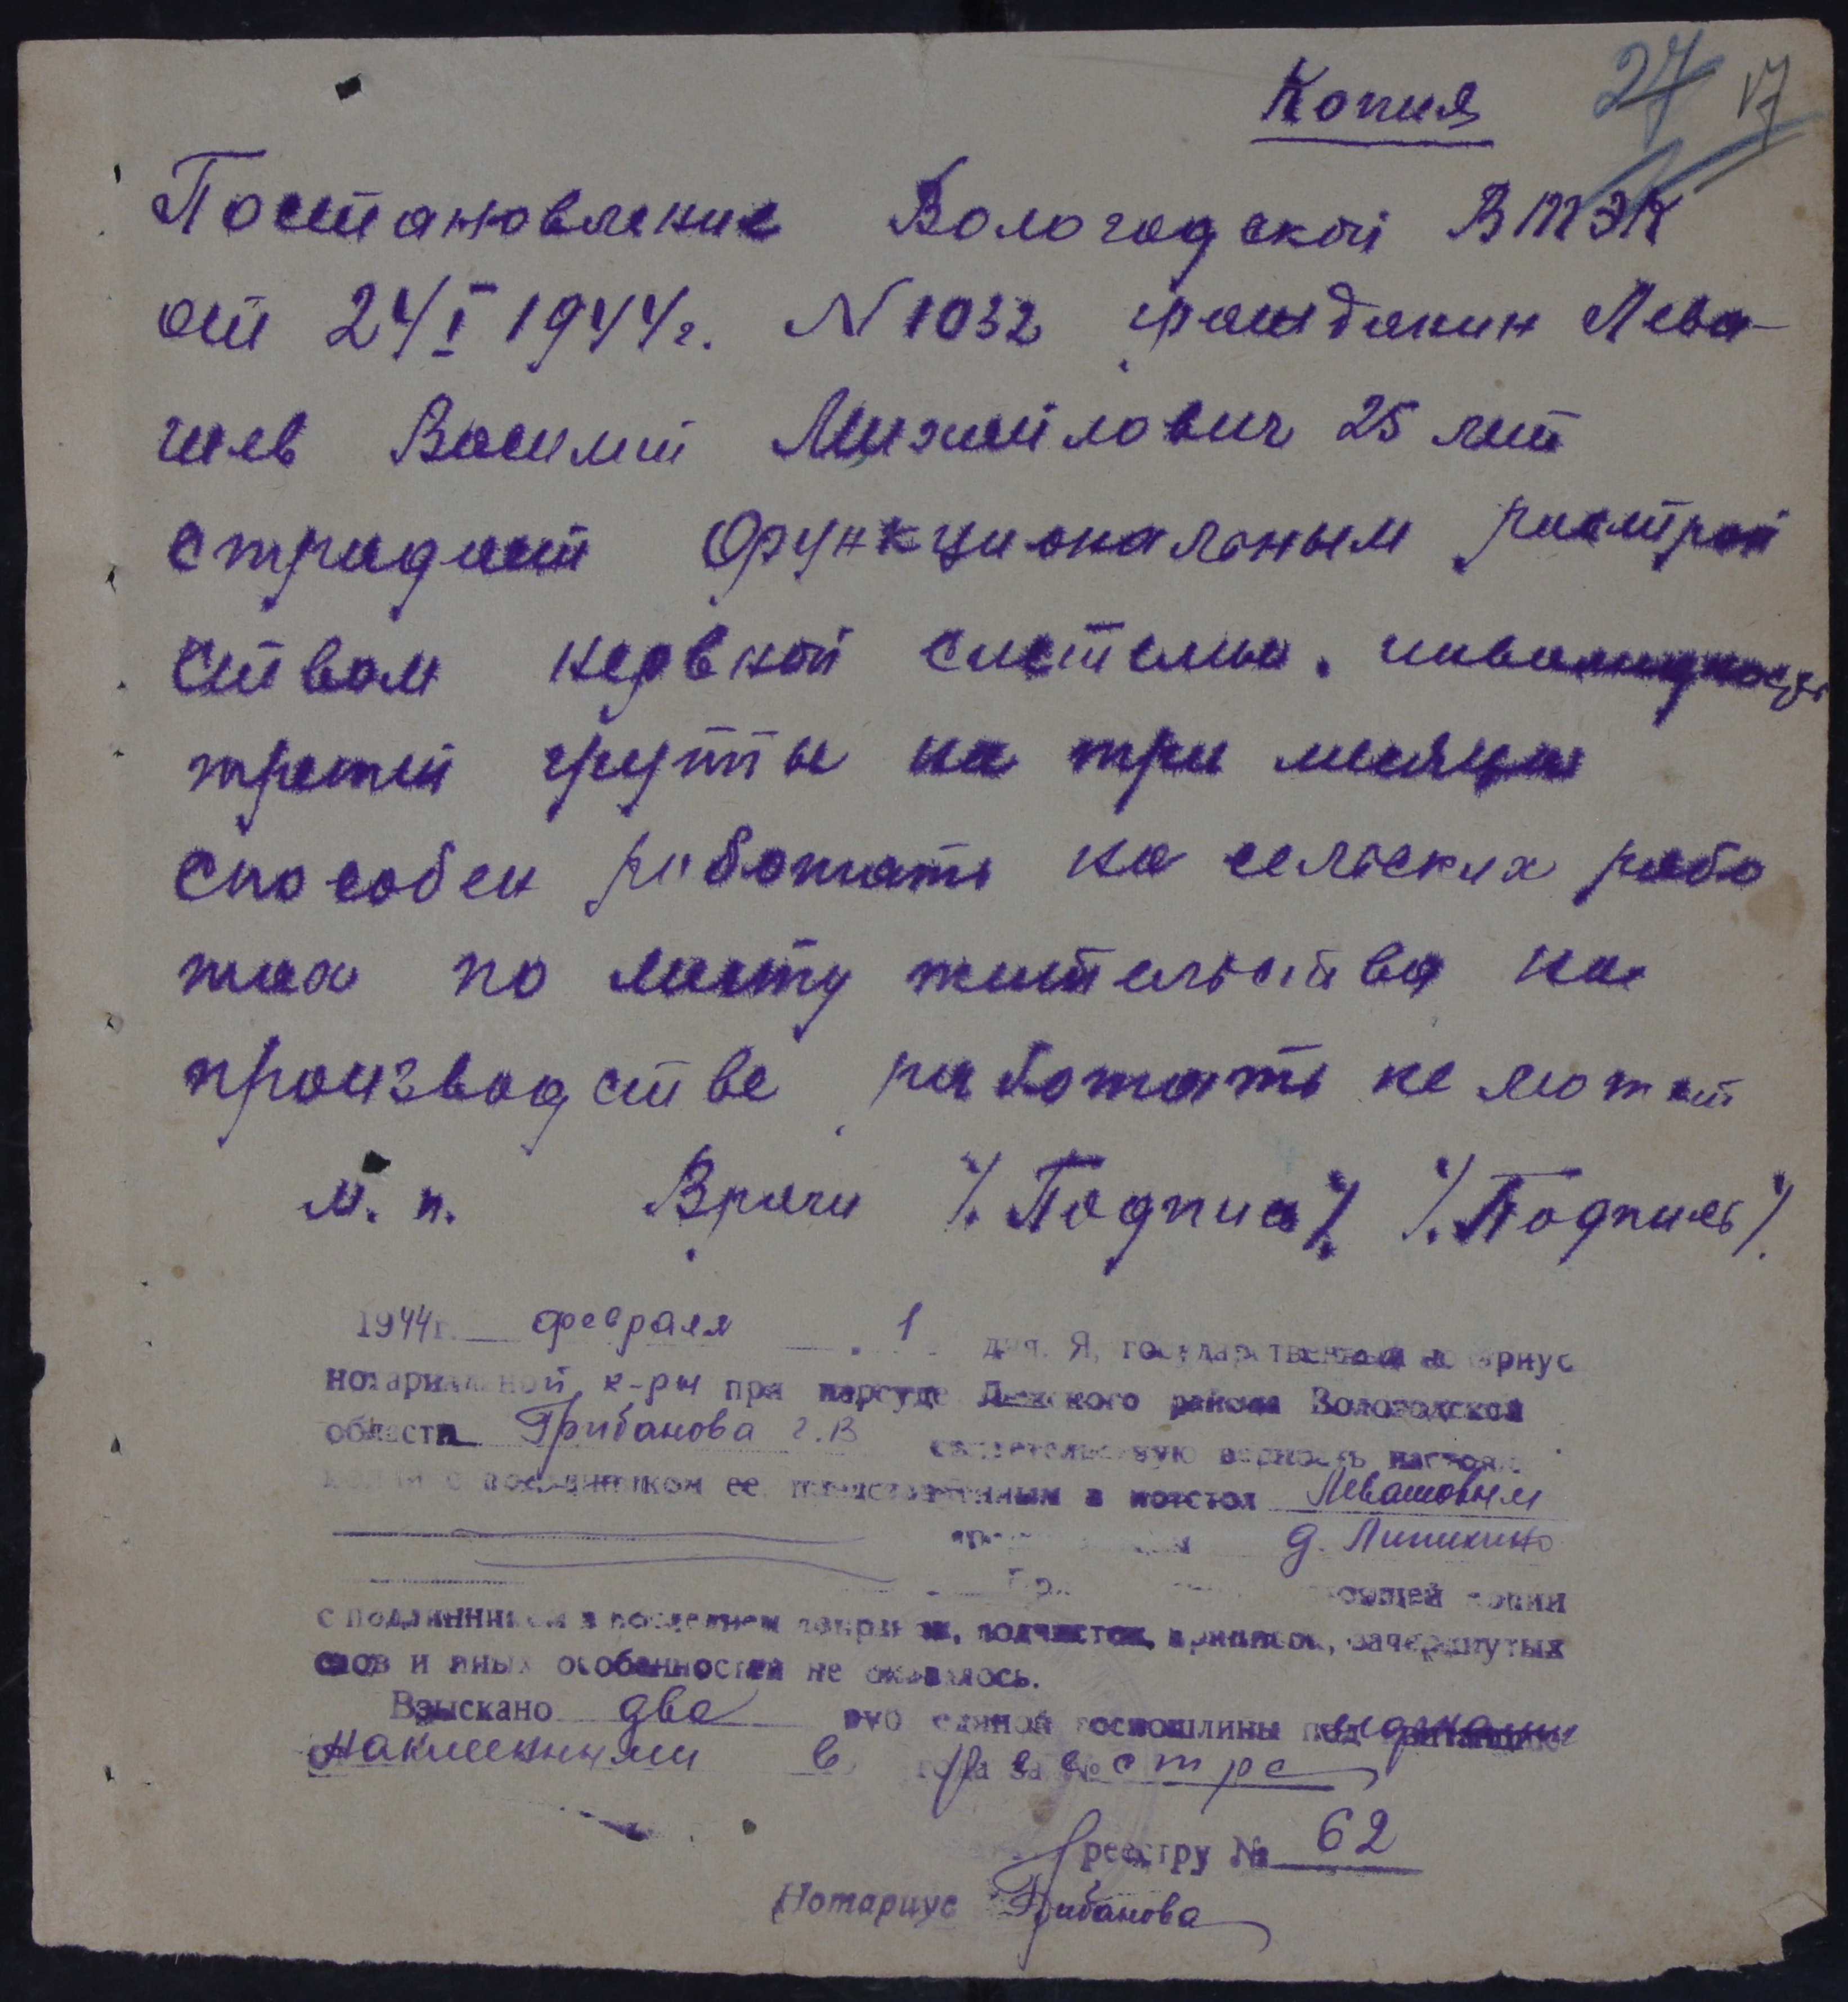 Копия 27 17
Постановление Вологодской ВТЭК
от 24/I 1944г. N 1032 гражданин Лева-
шев Василий Михайлович 25 лет
страдает функциональным растрой
ством нервной системы. инвалидность
третей группы на три месяца
способен работать на сельских рабо
тах по месту жительства на
производстве работать не может
м. п. Врачи /.Подпись/. /.Подпись/.
1944г. февраля 1 дня. Я, государственный нотариус
нотариальной к-ры при нарсуде района Вологодской
области Грибанова Г.В свидетельствую верность настоящ
копии с подлинником ее, представленным в нотстол Левашовым
д. Липихино
ющей копии
с подлинником в последнем поправок, подчисток, приписок, зачеркнутых
слов и иных особенностей не оказалось.
Взыскано два руб единой госпошлины под марками
наклеенными в года за № реестре
реестру № 62
Нотариус Грибанова